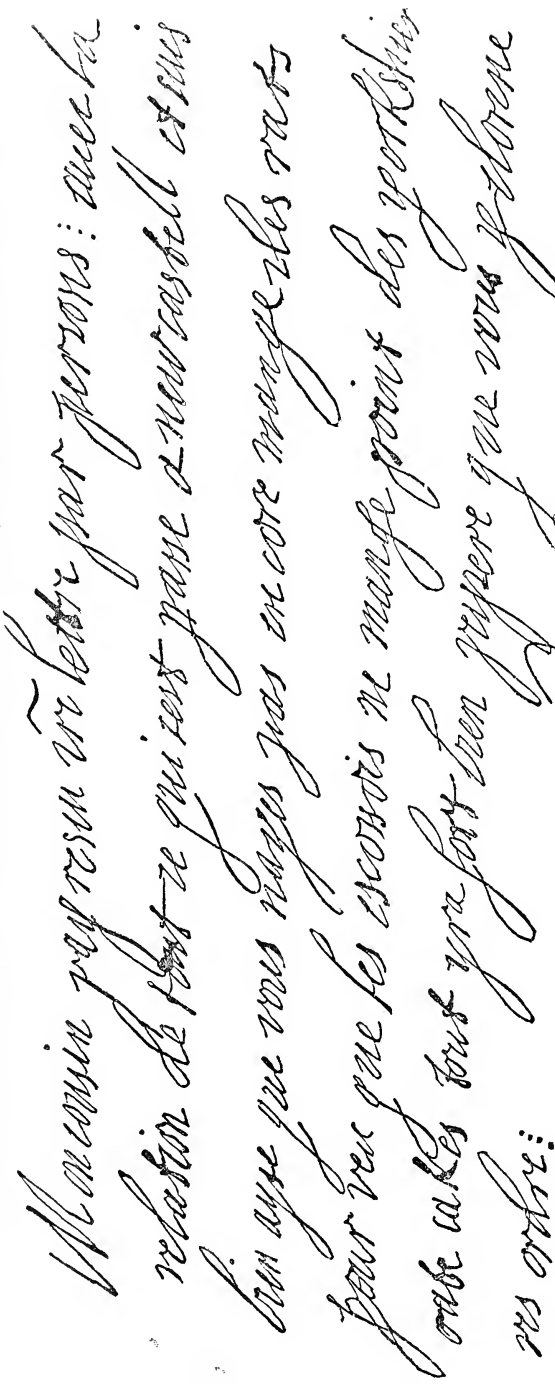 Mon cousin jay resceu vre lettre par persons: avec la
relation de tout ce qui sest passe a newcastell et suis
bien ayse que vous nayes pas encore mange les rats
pour veu que les escosois ne mange point des yorkshier
oate cakes tout yra fort bien jespere que vous y donne
res ordre: